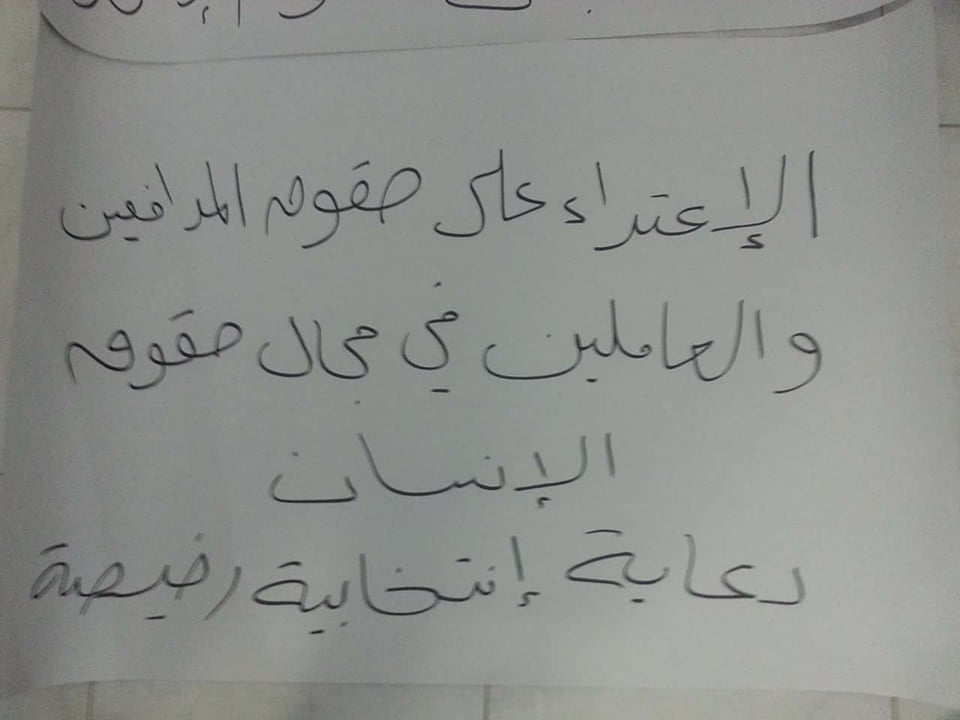 الإعتداء على حقوق المدافعين
والعاملين في مجال حقوق
الإنسان
دعاية إنتخابية رخيصة